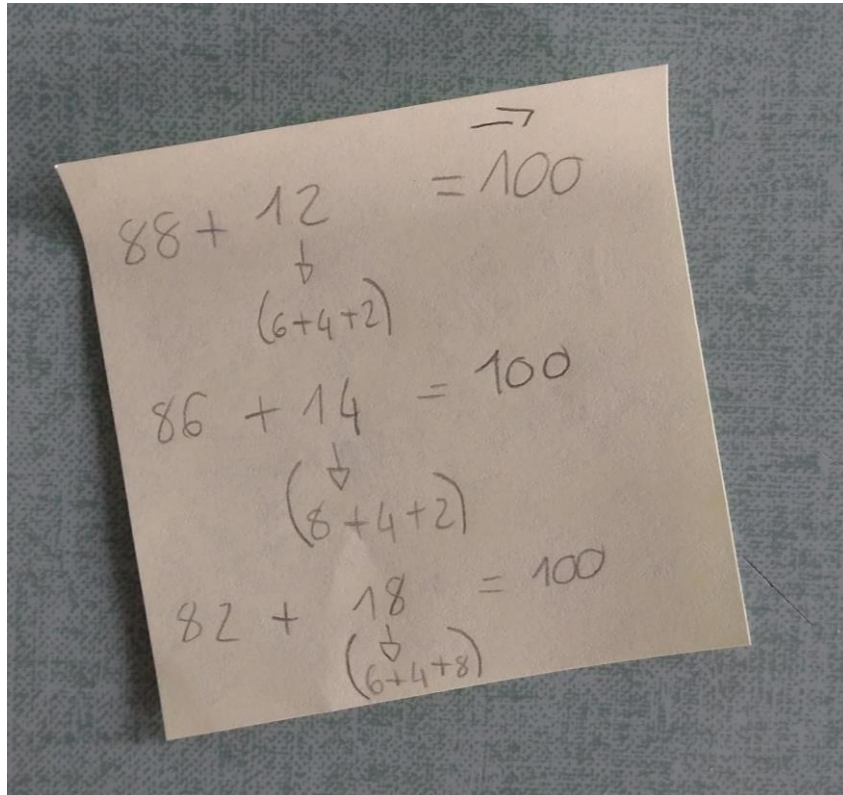 88 + 12 = 100
(6+4+2)
86 + 14 = 100
(8+4+2)
82 + 18 = 100
(6+4+8)